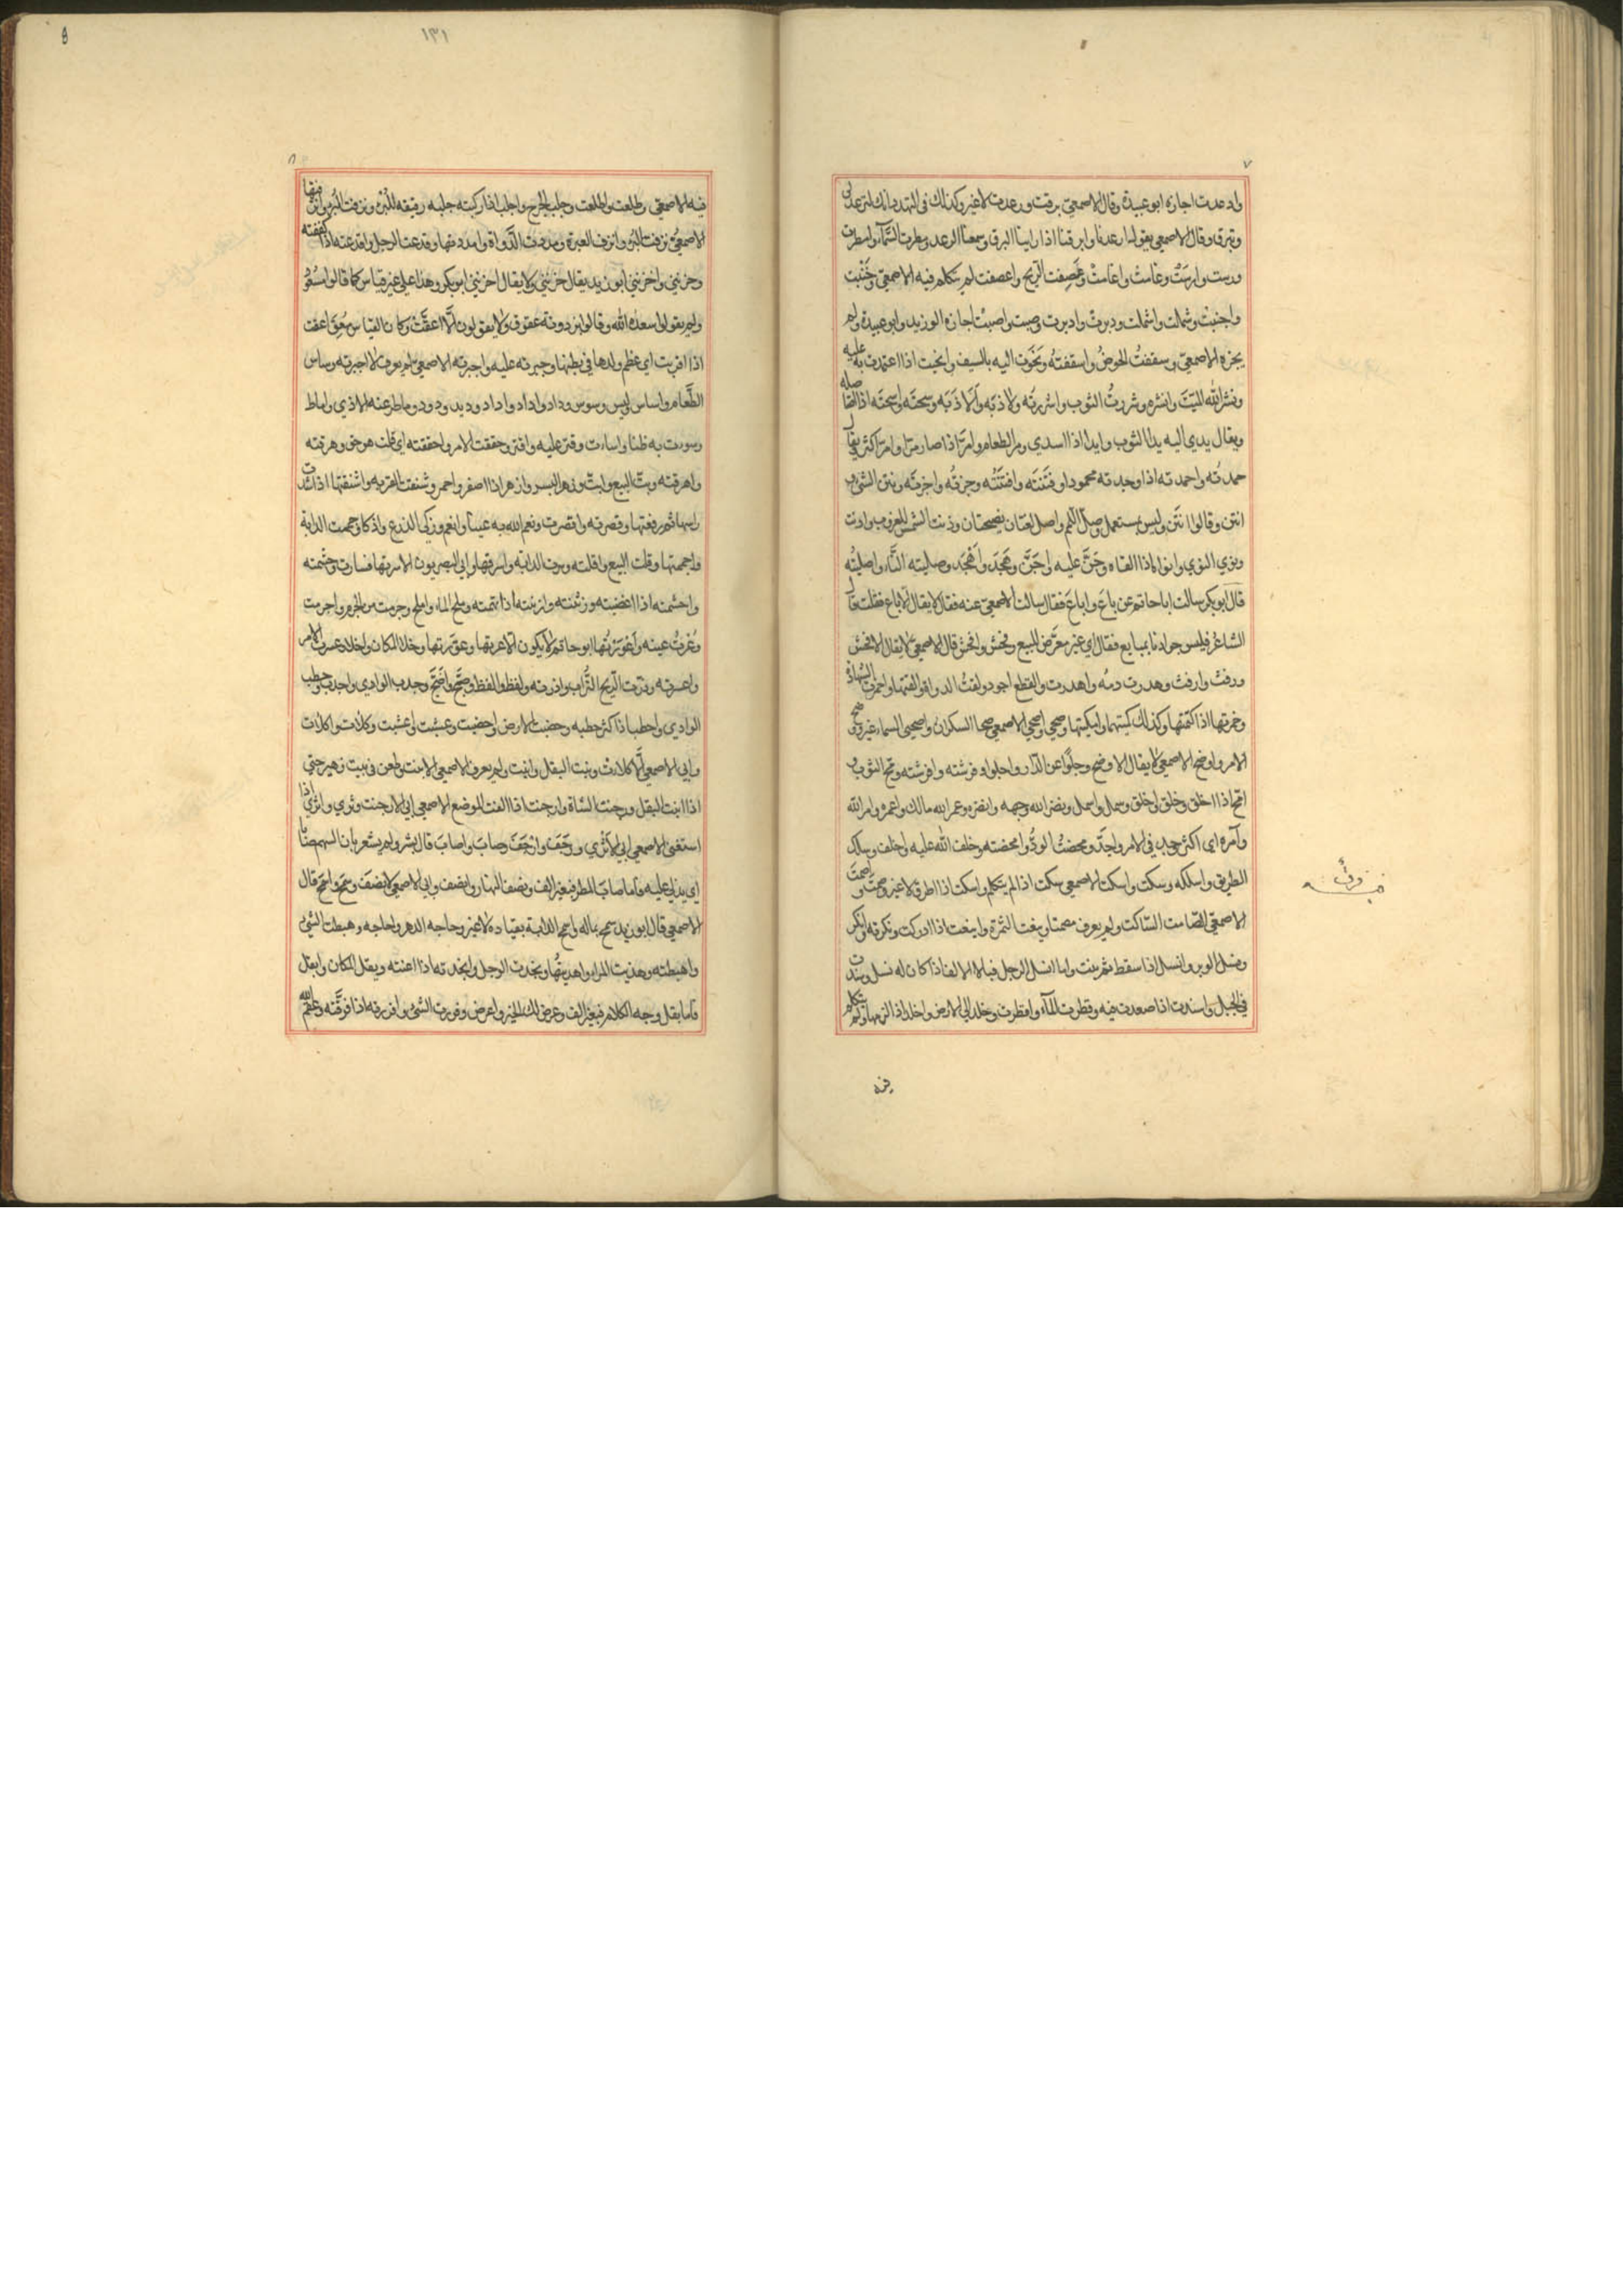 ٧
وارعدت اجازه ابو عبيدة وقال الاصمعي برقت ورعدت لا غير وكذلك في التهدد انك لترعد لي
وتبرق وقال الاصمعي يقولون ارعدنا وابرقنا اذا راينا البرق وسمعنا الرعد ومطرت السماء وامطرت
ورست وارست وغامت واغامت وعصفت الريح واعصفت لم يتكلم فيه الاصمعي وجنبت
واجنبت وشملت واشملت ودبرت وادبرت وصبت واصبت اجازه ابو زيد وابو عبيدة ولم
يجزه الاصمعي وسقفت الحوض واسقفته ونحوت اليه بالسيف وانحيت اذا اعتمدت به عليه
ونشر الله الميت وانشره وشررت الثوب واشررته ولاذ به وألاذ به وسحته واسحته اذا استاصله
ويقال يدي اليه يدا الثوب وايدا اذا اسدي ومر الطعام وامر اذا صار مرا وامر اكثر يقال
حمدته واحمدته اذا وجدته محمودا وفتنته وافتنته وحزنه واحزنه ونتن الشيء
انتن وقالوا نتن وليس بمستعمل وصل اللحم واصل لغتان فصيحتان ودنت الشمس للغروب وادنت
ونوي النوي وانوا اذا القاه وجن عليه واجن وهجد واهجد وصليته النار واصليته
قال ابو بكر سالت ابا حاتم عن باع واباع فقال سالت الاصمعي عنه فقال لا يقال اباع فقلت قال
الشاعر فليس جوادنا بمباع فقال اي غير معرض للبيع وفحش وافحش قال الاصمعي لا يقال الا افحش
ورفث وارفث وهدرت دمه واهدرت والقطع اجود ولقت الدواة والقتها واخمرت الشهادة
وخمرتها اذا كتمتها وكذلك كميتها واكميتها وصحي واصحي الاصمعي صحا السكران واصحيى السماء غير وضح
الامر واوضح الاصمعي لا يقال الا وضح وجلوا عن الدار واجلوا وفرشته وافرشته ومح الثوب
امح اذا اخلق وخلق واخلق وسمل واسمل ونضر الله وجهه وانضره وعمر الله مالك واعمره وامر الله
وآمره اي اكثر وجد في الامر واجد ومحضت الود وامحضته وخلف الله عليه واخلف وسلك
الطريق واسلكه وسكت واسكت الاصمعي سكت اذا لم يتكلم واسكت اذا اطرق لا غير وصمت واصمت
الاصمعي الصامت الساكت ولم يعرف مصمتا وينعت الثمرة واينعت اذا ادركت ونكرته وانكر
ونسل الوبر وانسل اذا سقط ثم نبت واما انسل الرجل فبالالف اذا كان له نسل وسندت
في الجبل واسندت اذا صعدت فيه وقطرت الماء واقطرت وخلد الى الارض واخلد اذا لزمها ولم يتكلم
فيه
١٣١
٨
فيه الاصمعي وطلعت واطلعت وجلب الجرح واجلب اذا ركبته جلبه رقيقه للبرء ونزفت البئر وانزفتها
الاصمعي نزفت البئر وانزف العبرة ومددت الدواة وامددتها وقدعت الرجل واقدعته اذا كففته
وحزنني واحزنني ابو زيد يقال حزنني ولا يقال احزنني ابو بكر وهذا على غير قياس كما قالوا اسعد
ولم يقولوا سعده الله وقالوا بردونة عقوق ولا يقولون الا اعقت وكان القياس معق اعقت
اذا اقربت اي عظم ولدها في بطنها وجبرته عليه واجبرته الاصمعي لم يعرف الا اجبرته وساس
الطعام واساس ليس وسوس وداد واداد واداد وديد ودود وماط عنه الاذي واماط
وسوت به ظنا واسات وقتر عليه واقتر وحققت الامر واحققته اي قلت هو حق وهرقته
واهرقته وبت البيع وابت وزهر البسر وازهر اذا اصفر واحمر وشنقت القربه واشنقتها اذا شددت
راسها ثم رفعتها وقصرته واقصرت ونعم الله به عينا وانعم وزكي الزرع واذكا وجممت الدابة
واجممتها وقلت البيع واقلته وسرت الدابه واسرتها وابي البصريون الا سرتها فسارت وحشمته
واحشمته اذا اغضبته وزننته وازننته اذا اتهمته وملح الماء واملح وجرمت من الجرم واجرمت
وعرت عينه واعورتها ابو حاتم لا يكون الا عرتها وعورتها وخلا المكان واخلا وعسرت الامر
واعسرته وذرت الريح التراب واذرته ولغط والغط وضج واضج وجدب الوادي واجدب وحطب
الوادي واحطب اذا كثر حطبه وخضبت الارض واخضبت وعشبت واعشبت وكلات واكلات
وابي الاصمعي الا اكلات ونبت البقل وانبت ولم يعرف الاصمعي الا نبت وطعن في بيت زهير حتي
اذا انبت البقل ورجنت الشاة وارجنت اذا الفت الموضع الاصمعي ابي الا رجنت وثري واثري اذا
استغنى الاصمعي ابي الا اثري ورجف وارجف وصاب واصاب قال بشر ولم يشعر بان السهم صابا
اي ينزل عليه فاما صاب المطر فبغير الف ونصف النهار وانصف وابي الاصمعي الا نصف وسمح واسمح قال
الاصمعي قال ابو زيد سمح بماله واسمح الدابة بقياده لا غير وحاجه الدهر واحاجه وهبطت الشيء
واهبطته وهديت المراه واهديتها ونجدت الرجل وانجدته اذا اعنته وبقل المكان وابقل
فاما بقل وجه الغلام فبغير الف وعرض لك الخير واعرض وفررت الشيء وافررته اذا فرقته وعقم الله